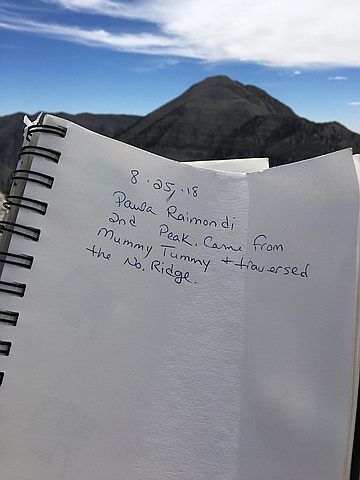 8.25.18
Paula Raimondi
2nd Peak. Came from
Mummy Tummy + traversed
the No. Ridge.